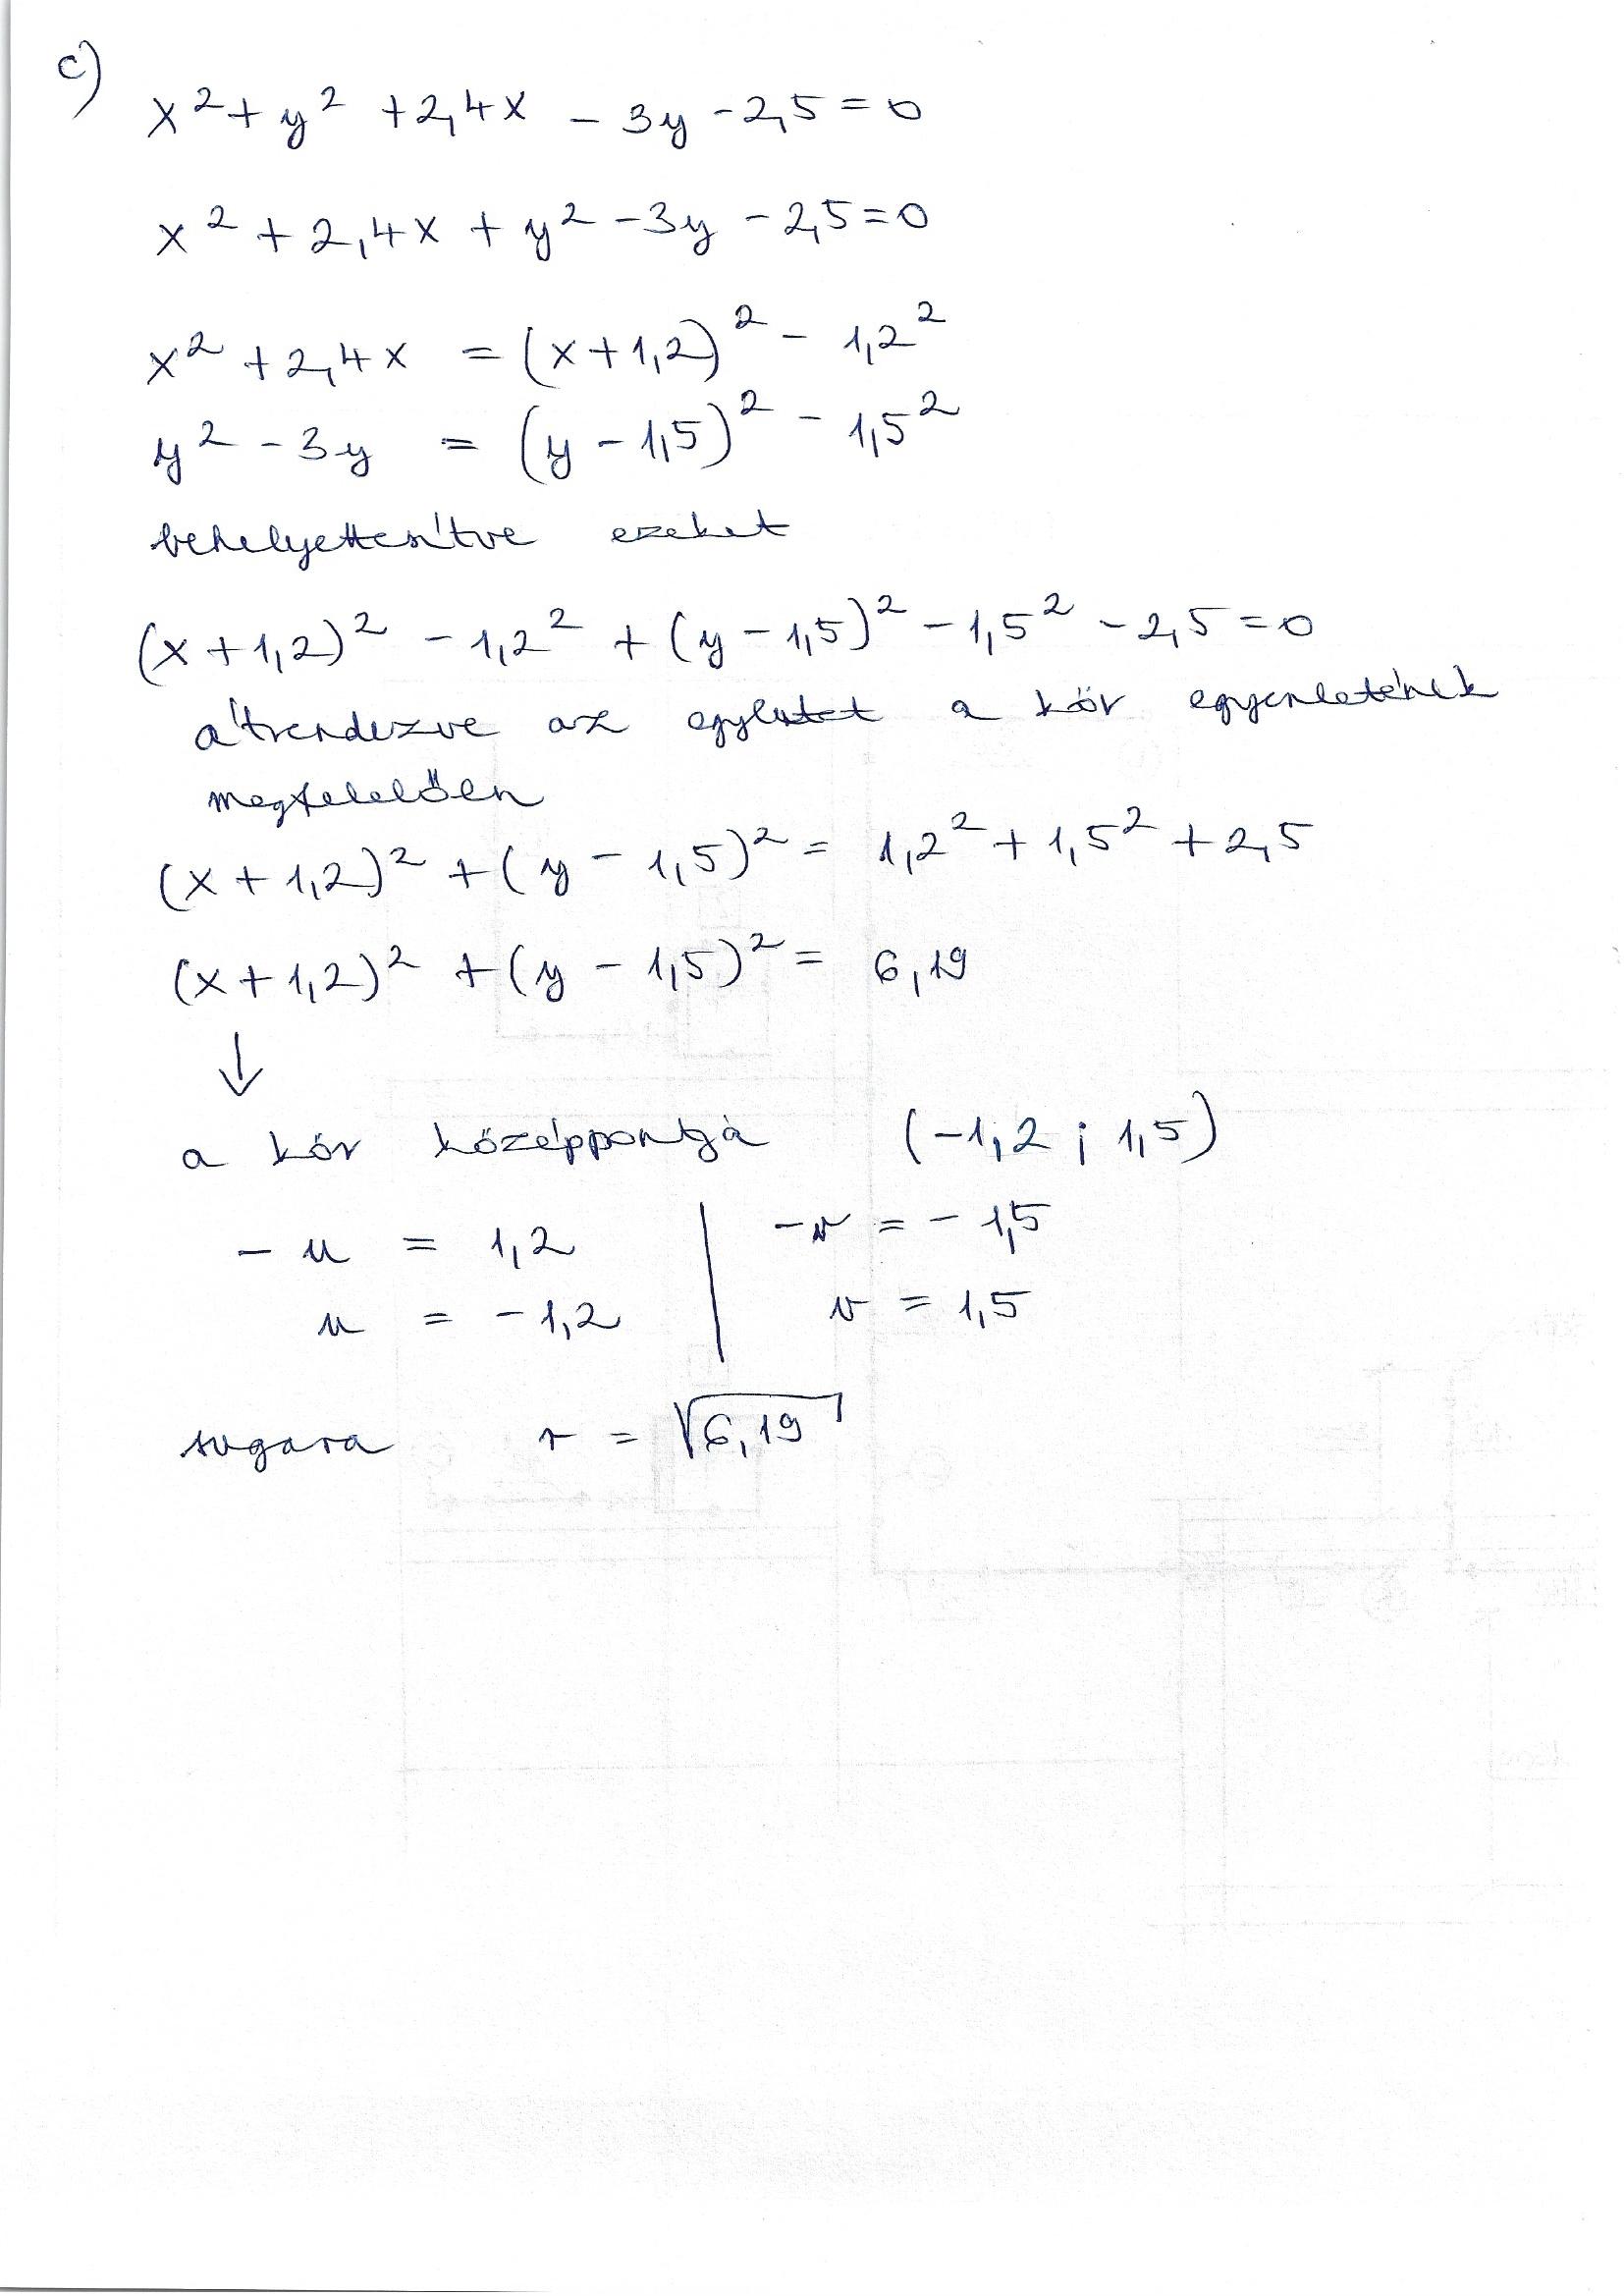 c)
x² + y² + 2,4x - 3y - 2,5 = 0
x² + 2,4x + y² - 3y - 2,5 = 0
x² + 2,4x = (x + 1,2)² - 1,2²
y² - 3y = (y - 1,5)² - 1,5²
behelyettesítve ezeket
(x + 1,2)² - 1,2² + (y - 1,5)² - 1,5² - 2,5 = 0
átrendezve az egyletet a kör egyenletének
megfelelően
(x + 1,2)² + (y - 1,5)² = 1,2² + 1,5² + 2,5
(x + 1,2)² + (y - 1,5)² = 6,19
↓
a kör középpontja (-1,2 ; 1,5)
- u = 1,2 | -v = - 1,5
u = - 1,2 | v = 1,5
sugara r = √6,19